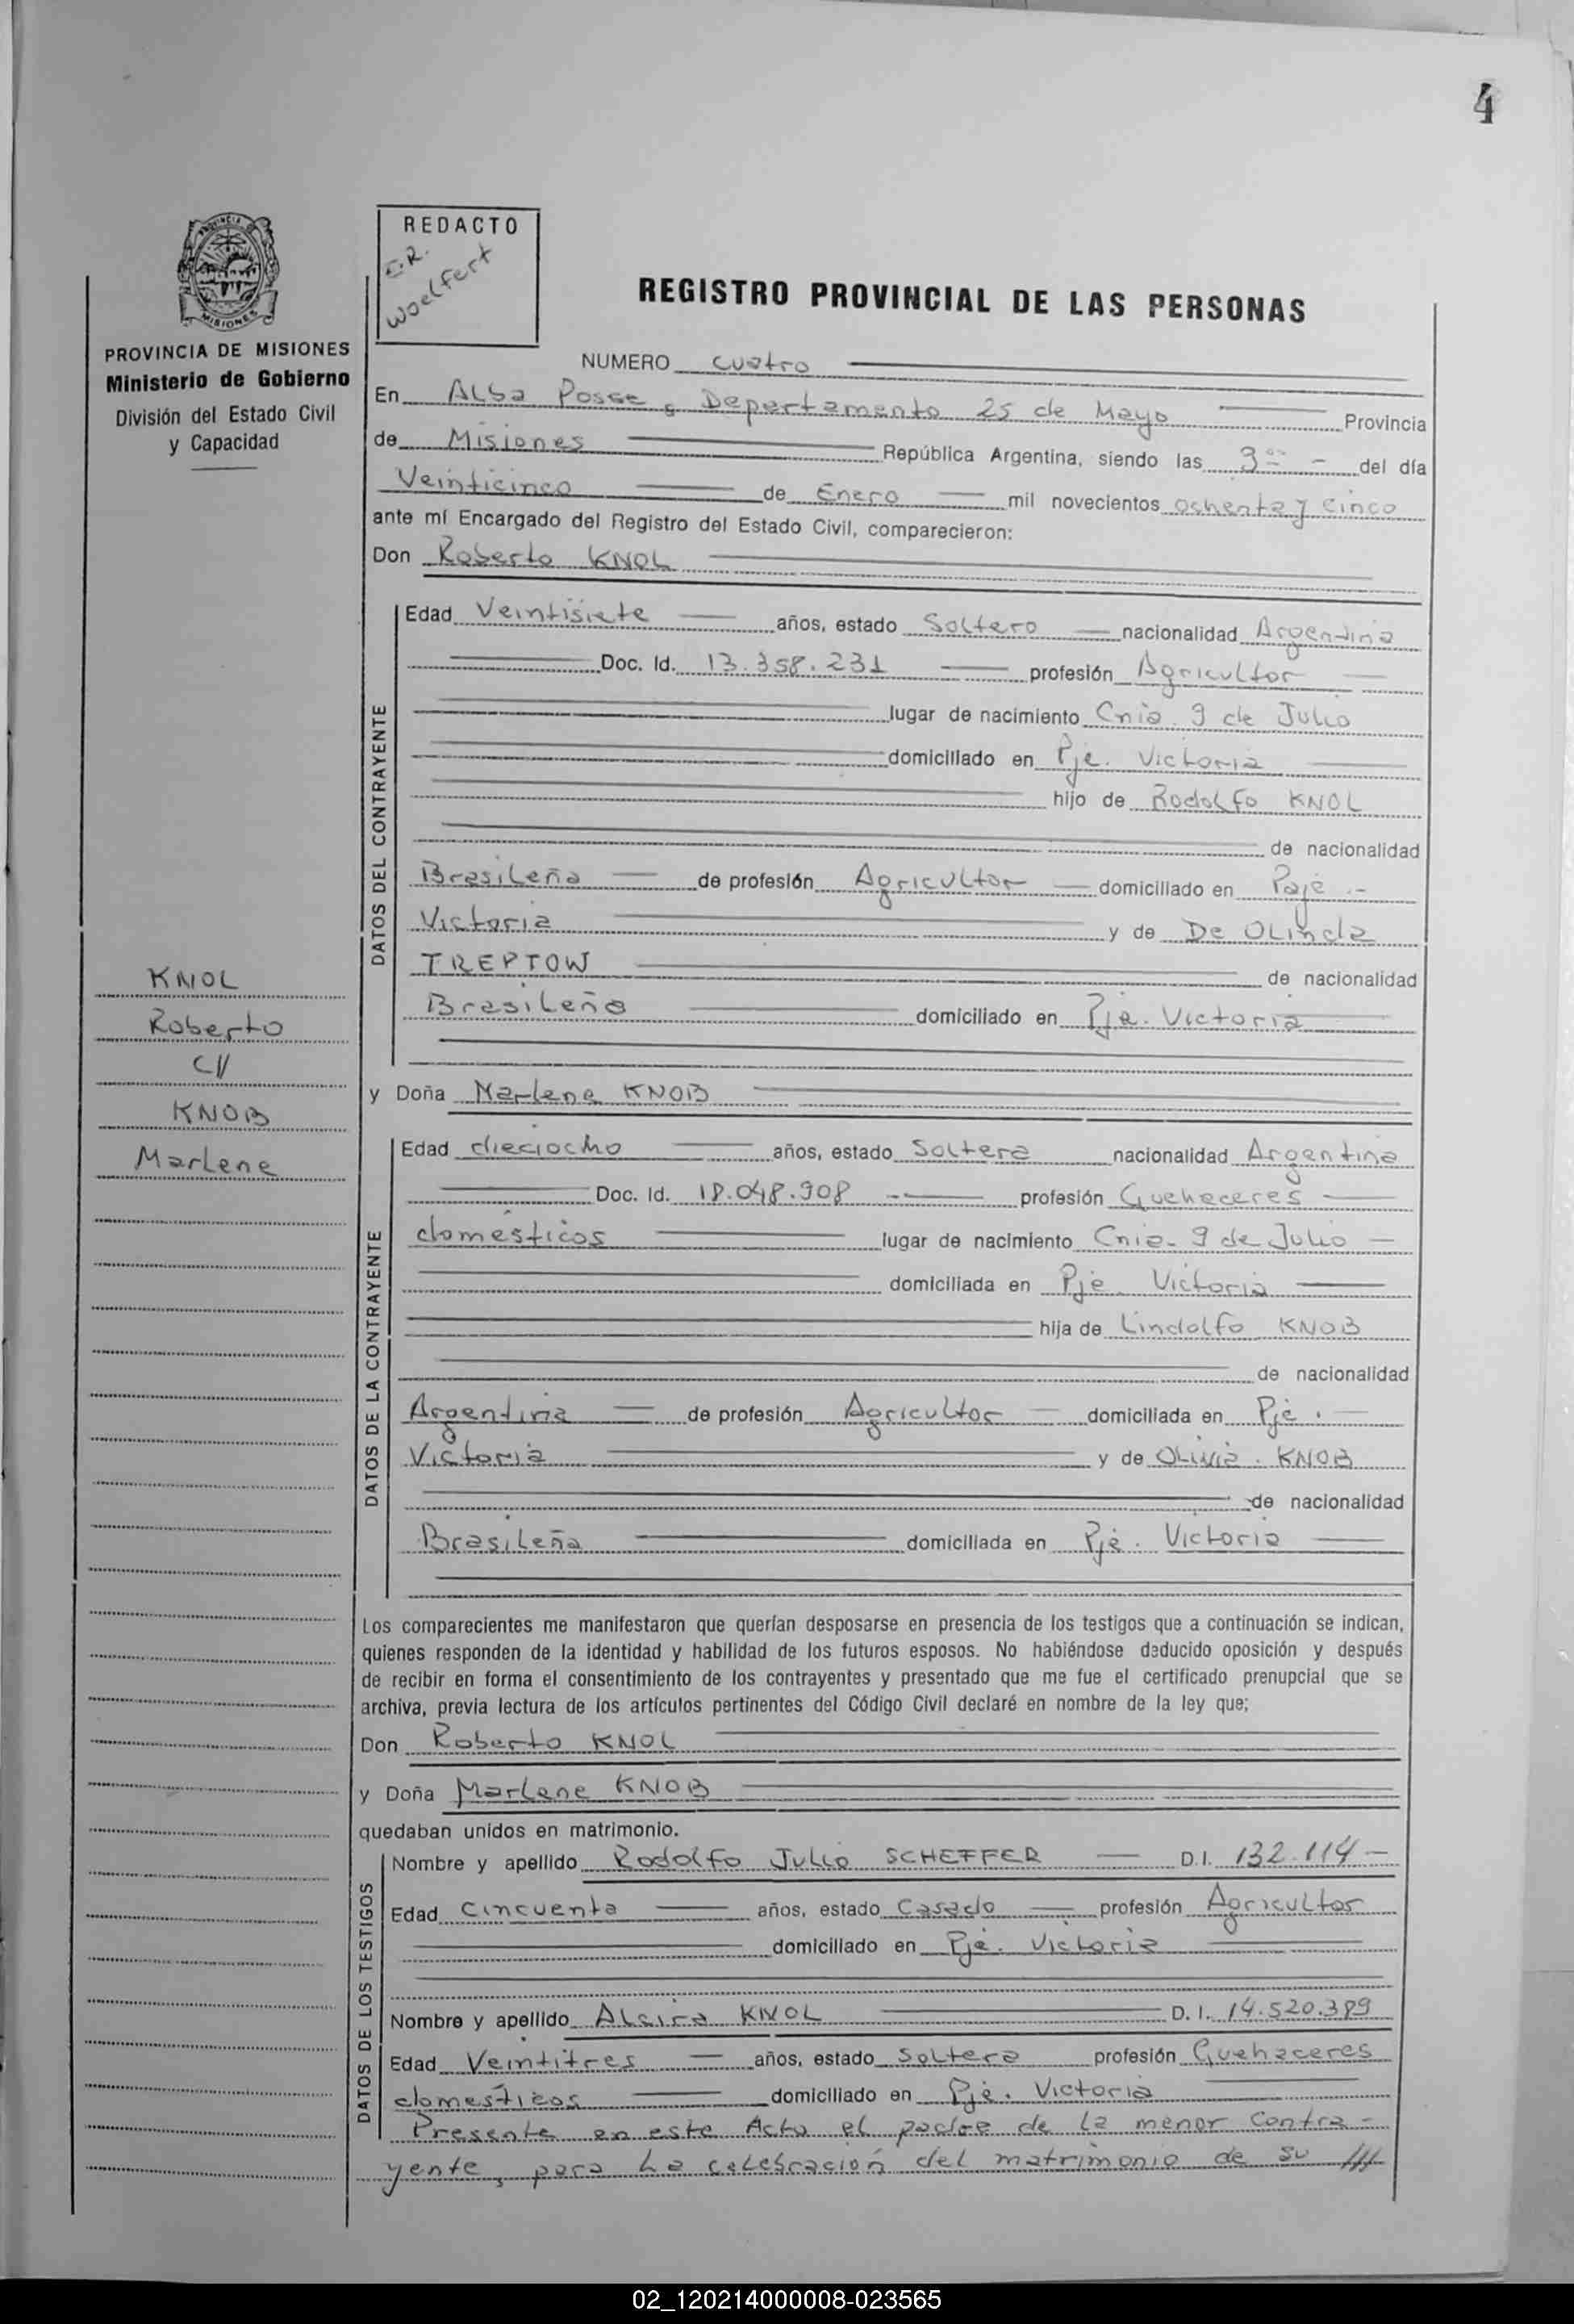 4
REDACTO
E.R.
Woelfert
PROVINCIA DE MISIONES
MISIONES
PROVINCIA DE MISIONES
Ministerio de Gobierno
División del Estado Civil
y Capacidad
REGISTRO PROVINCIAL DE LAS PERSONAS
NUMERO cuatro
En Alba Posse, Departamento 25 de Mayo Provincia
de Misiones República Argentina, siendo las 9 00 - del día
Veinticinco de Enero mil novecientos ochenta y cinco
ante mí Encargado del Registro del Estado Civil, comparecieron:
Don Roberto KNOL
DATOS DEL CONTRAYENTE
Edad Veintisiete años, estado Soltero nacionalidad Argentina
Doc. Id. 13.358.231 profesión Agricultor
lugar de nacimiento Cnia. 9 de Julio
domiciliado en Pje. Victoria
hijo de Rodolfo KNOL
de nacionalidad
Brasileña de profesión Agricultor domiciliado en Paje.-
Victoria y de De OLinda
TREPTOW de nacionalidad
Brasileña domiciliado en Pje. Victoria
KNOL
Roberto
C//
KNOB
Marlene
y Doña Marlene KNOB
DATOS DE LA CONTRAYENTE
Edad dieciocho años, estado Soltera nacionalidad Argentina
Doc. Id. 18.048.908 profesión Quehaceres
domésticos lugar de nacimiento Cnia. 9 de Julio
domiciliada en Pje. Victoria
hija de Lindolfo KNOB
de nacionalidad
Argentina de profesión Agricultor domiciliada en Pje.
Victoria y de Olivia. KNOB
de nacionalidad
Brasileña domiciliada en Pje. Victoria
Los comparecientes me manifestaron que querían desposarse en presencia de los testigos que a continuación se indican,
quienes responden de la identidad y habilidad de los futuros esposos. No habiéndose deducido oposición y después
de recibir en forma el consentimiento de los contrayentes y presentado que me fue el certificado prenupcial que se
archiva, previa lectura de los artículos pertinentes del Código Civil declaré en nombre de la ley que;
Don Roberto KNOL
y Doña Marlene KNOB
quedaban unidos en matrimonio.
DATOS DE LOS TESTIGOS
Nombre y apellido Rodolfo Julio SCHEFFER D.I. 132.114
Edad Cincuenta años, estado Casado profesión Agricultor
domiciliado en Pje. Victoria
Nombre y apellido Alcira KNOL D.I. 14.520.389
Edad Veintitres años, estado Soltera profesión Quehaceres
domésticos domiciliado en Pje. Victoria
Presente en este Acto el padre de la menor Contra-
yente, para la celebración del matrimonio de su ///
02_120214000008-023565